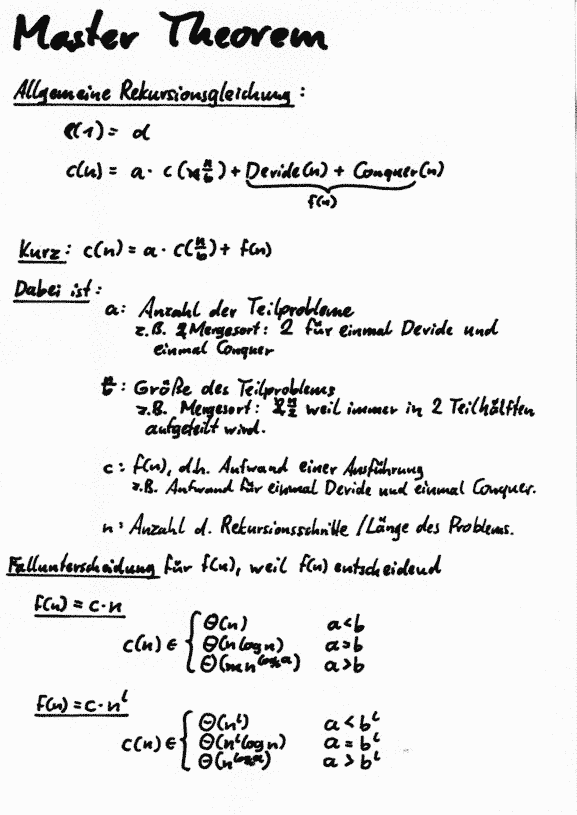 Master Theorem
Allgemeine Rekursionsgleichung:
c(1) = d
c(n) = a · c(n/b) + Devide(n) + Conquer(n)
f(n)
Kurz: c(n) = a · c(n/b) + f(n)
Dabei ist:
a: Anzahl der Teilprobleme
z.B. Mergesort: 2 für einmal Devide und
einmal Conquer
n/b: Größe des Teilproblems
z.B. Mergesort: n/2 weil immer in 2 Teilhälften
aufgeteilt wird.
c: f(n), d.h. Aufwand einer Ausführung
z.B. Aufwand für einmal Devide und einmal Conquer.
n: Anzahl d. Rekursionsschnitte / Länge des Problems.
Fallunterscheidung für f(n), weil f(n) entscheidend
f(n) = c · n
Θ(n) a < b
c(n) ∈ { Θ(n log n) a = b
Θ(n^(log_b a)) a > b
f(n) = c · n^l
Θ(n^l) a < b^l
c(n) ∈ { Θ(n^l log n) a = b^l
Θ(n^(log_b a)) a > b^l